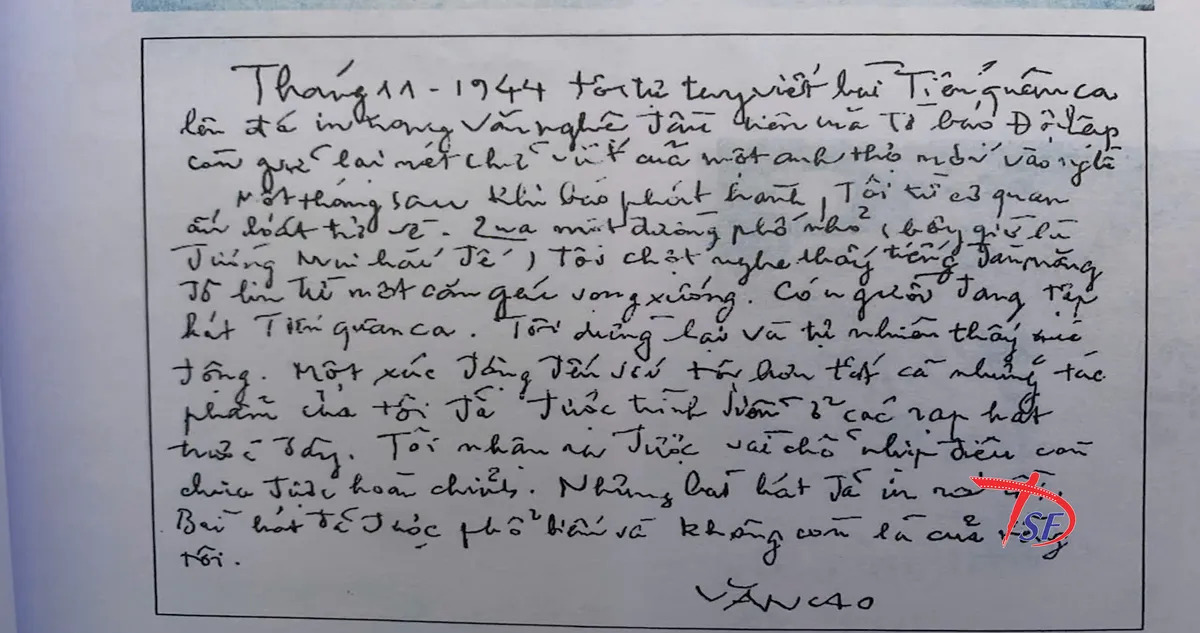 Tháng 11 - 1944 tôi tự tay viết bài Tiến quân ca
lên đá in trong Văn nghệ đầu tiên mà Tờ báo Độc Lập
còn giữ lại nét chữ viết của một anh thợ mới vào nghề
Một tháng sau khi báo phát hành, Tôi từ cơ quan
ấn loát trở về. Qua một đường phố nhỏ (bây giờ là
đường Mai hắc Đế), tôi chợt nghe thấy tiếng đàn măng
đô lin từ một căn gác vọng xuống. Có người đang tập
hát Tiến quân ca. Tôi dừng lại và tự nhiên thấy xúc
động. Một xúc động đến với tôi hơn tất cả những tác
phẩm của tôi đã được trình diễn ở các rạp hát
trước đây. Tôi nhận ra được vài chỗ nhịp điệu còn
chưa được hoàn chỉnh. Những bài hát đã in ra
Bài hát đã được phổ biến và không còn là của
tôi.
VĂN CAO
TSF